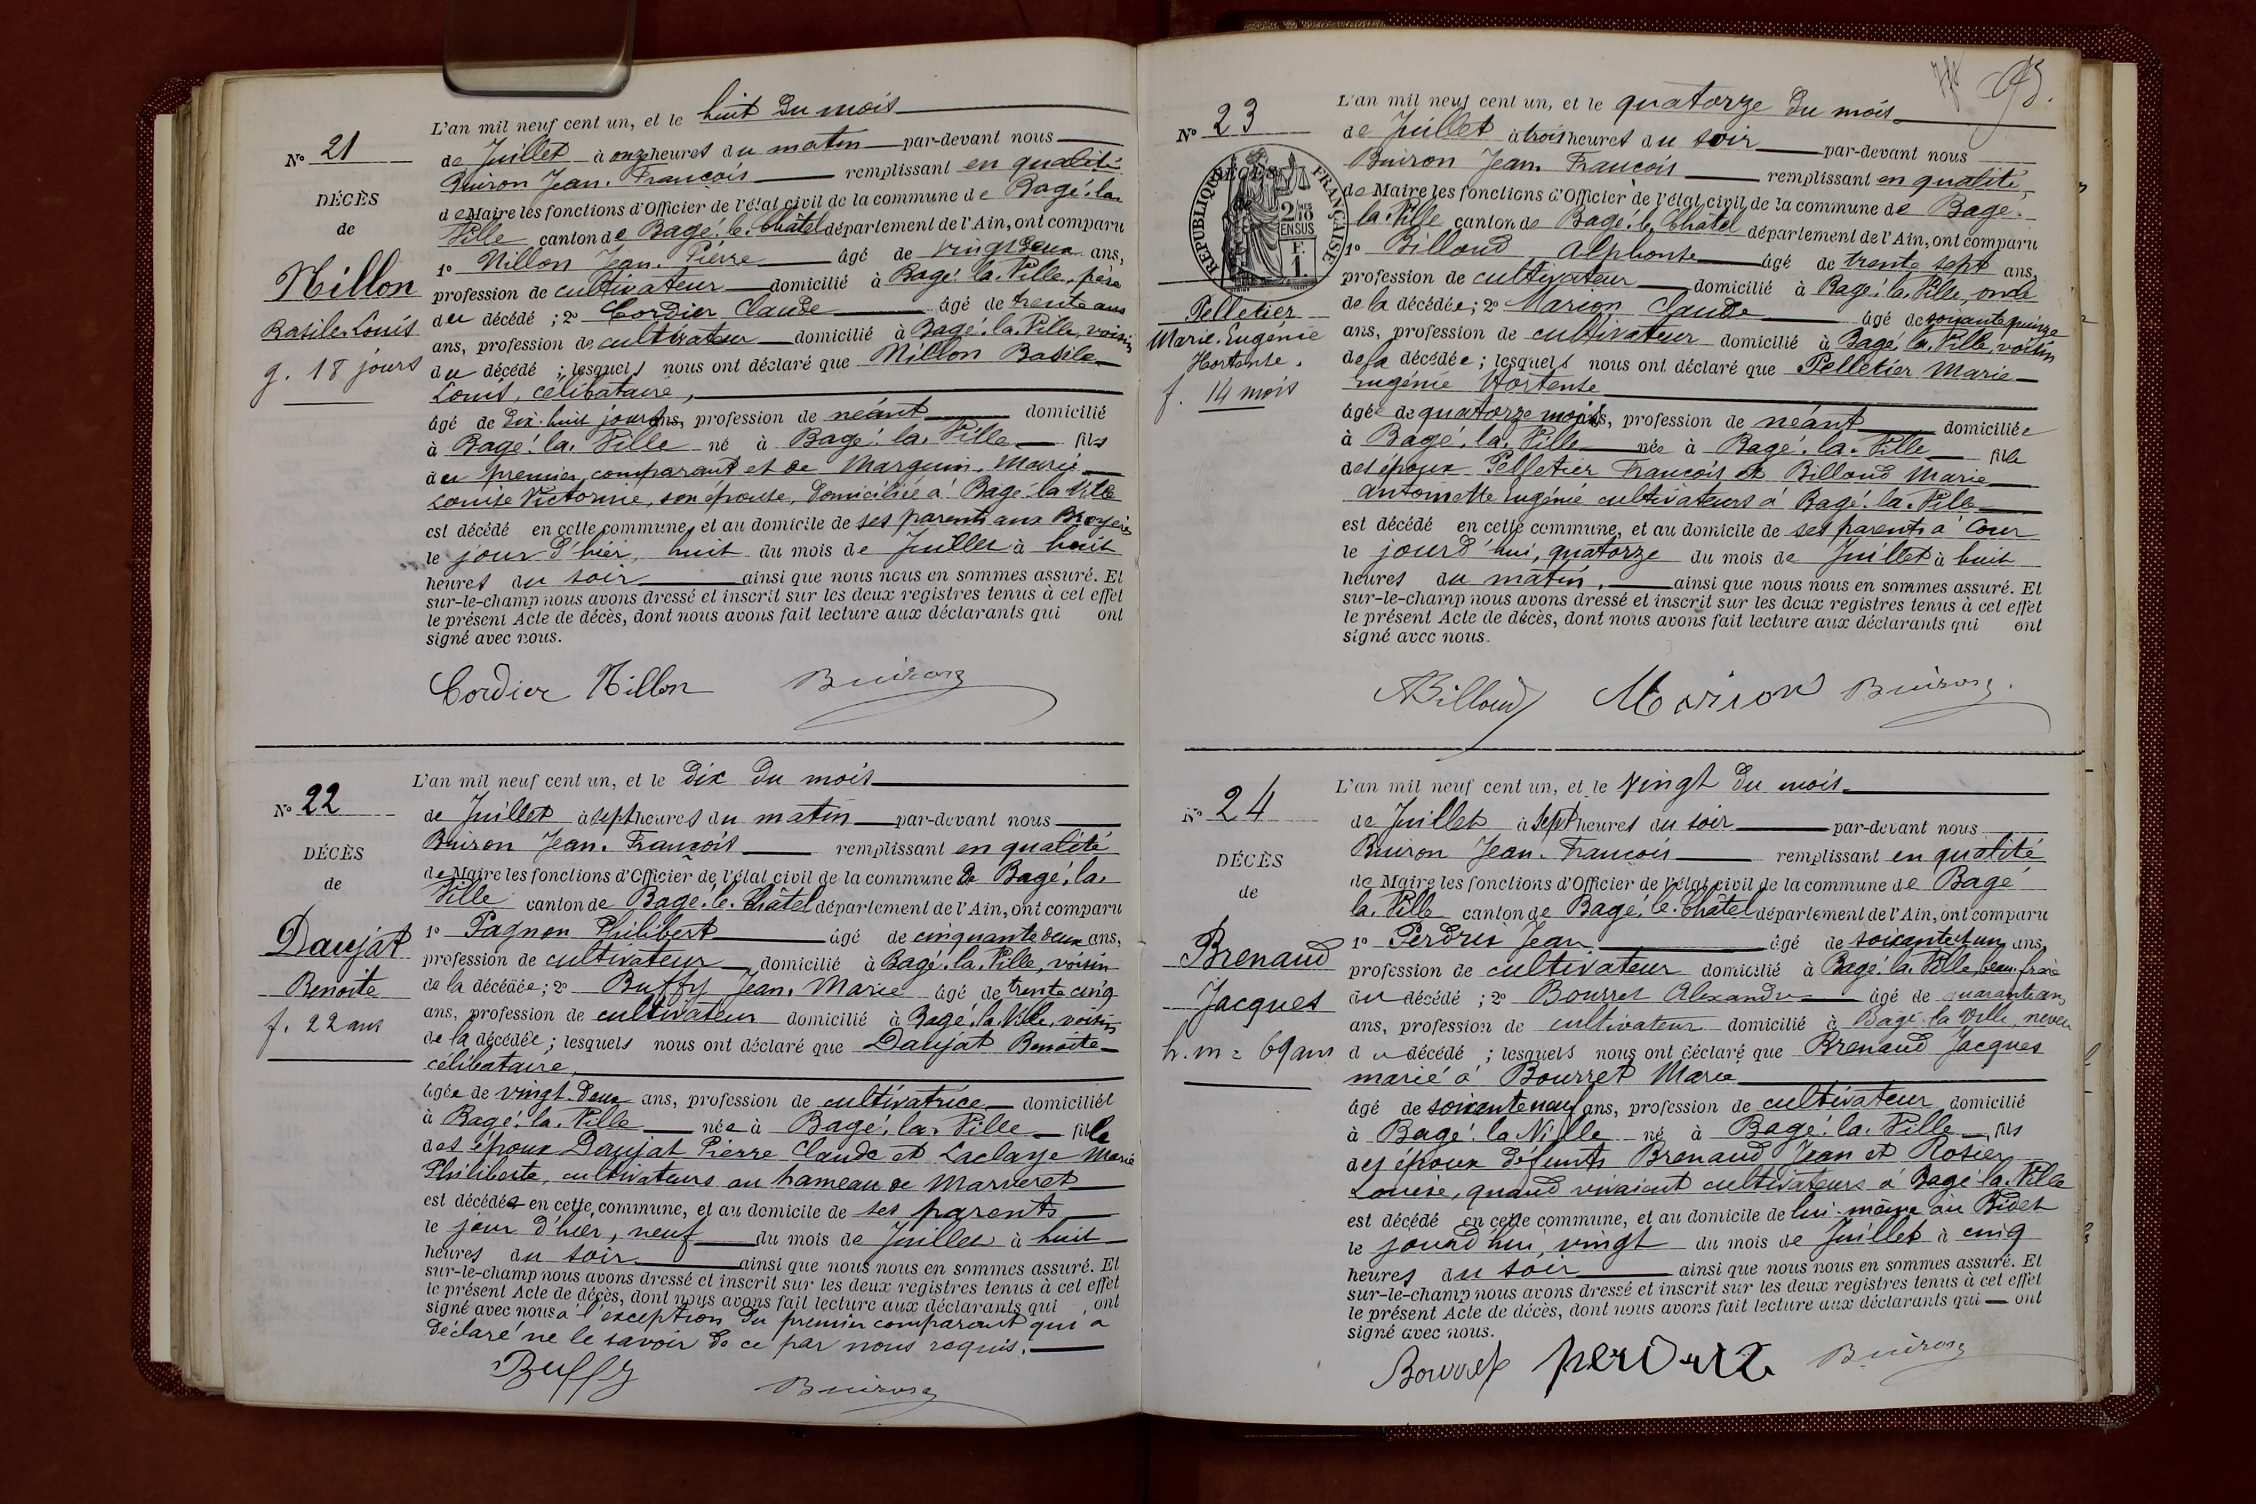 N° 21
DÉCÈS
de
Nillon
Basile. Louis
g. 18 jours
L'an mil neuf cent un, et le huit du mois
de Juillet à onze heures du matin par-devant nous
Buiron Jean. François remplissant en qualité
de Maire les fonctions d'Officier de l'état civil de la commune de Bagé. la.
Ville canton de Bagé. le. Châtel département de l'Ain, ont comparu
1° Nillon Jean. Pierre âgé de vingt deux ans,
profession de cultivateur domicilié à Bagé. la. Ville, père
du décédé ; 2° Cordier Claude âgé de trente ans
ans, profession de cultivateur domicilié à Bagé. la. Ville, voisin
du décédé ; lesquels nous ont déclaré que Nillon Basile
Louis, célibataire,
âgé de dix. huit jours ans, profession de néant domicilié
à Bagé. la. Ville né à Bagé. la. Ville fils
du premier comparant et de Marguin. Marie
Louise Victorine, son épouse, domiciliée à Bagé. la Ville
est décédé en cette commune, et au domicile de ses parents aux Bruyères
le jour d'hier, huit du mois de Juillet à huit
heures du soir ainsi que nous nous en sommes assuré. Et
sur-le-champ nous avons dressé et inscrit sur les deux registres tenus à cet effet
le présent Acte de décès, dont nous avons fait lecture aux déclarants qui ont
signé avec nous.
Cordier Nillon Buiron
N° 22
DÉCÈS
de
Daujat
Benoite
f. 22 ans
L'an mil neuf cent un, et le dix du mois
de Juillet à sept heures du matin par-devant nous
Buiron Jean. François remplissant en qualité
de Maire les fonctions d'Officier de l'état civil de la commune de Bagé. la.
Ville canton de Bagé. le. Châtel département de l'Ain, ont comparu
1° Pagnon Philibert âgé de cinquante deux ans,
profession de cultivateur domicilié à Bagé. la. Ville, voisin
de la décédée ; 2° Buffy Jean. Marie âgé de trente cinq
ans, profession de cultivateur domicilié à Bagé. la. Ville, voisin
de la décédée ; lesquels nous ont déclaré que Daujat Benoite
célibataire,
âgée de vingt. deux ans, profession de cultivatrice domiciliée
à Bagé. la. Ville née à Bagé. la. Ville fille
des époux Daujat Pierre Claude et Laclaye Marie
Philiberte, cultivateurs au hameau de Marveret
est décédée en cette commune, et au domicile de ses parents
le jour d'hier, neuf du mois de Juillet à huit
heures du soir ainsi que nous nous en sommes assuré. Et
sur-le-champ nous avons dressé et inscrit sur les deux registres tenus à cet effet
le présent Acte de décès, dont nous avons fait lecture aux déclarants qui ont
signé avec nous à l'exception du premier comparant qui a
déclaré ne le savoir de ce par nous requis.
Buffy Buiron
95.
N° 23
DÉCÈS
de
RÉPUBLIQUE FRANÇAISE
2/10
EN SUS
F.
1.
Pelletier
Marie. Eugénie
Hortense.
f. 14 mois
L'an mil neuf cent un, et le quatorze du mois
de Juillet à trois heures du soir par-devant nous
Buiron Jean. François remplissant en qualité
de Maire les fonctions d'Officier de l'état civil de la commune de Bagé.
la. Ville canton de Bagé. le. Châtel département de l'Ain, ont comparu
1° Billoud Alphonse âgé de trente sept ans,
profession de cultivateur domicilié à Bagé. la. Ville, oncle
de la décédée ; 2° Marion Claude âgé de soixante quinze
ans, profession de cultivateur domicilié à Bagé. la. Ville, voisin
de la décédée ; lesquels nous ont déclaré que Pelletier Marie
Eugénie Hortense
âgée de quatorze mois ans, profession de néant domiciliée
à Bagé. la. Ville née à Bagé. la. Ville fille
des époux Pelletier François et Billoud Marie
Antoinette Eugénie cultivateurs à Bagé. la. Ville
est décédé en cette commune, et au domicile de ses parents à Cour
le jourd'hui, quatorze du mois de Juillet à huit
heures du matin, ainsi que nous nous en sommes assuré. Et
sur-le-champ nous avons dressé et inscrit sur les deux registres tenus à cet effet
le présent Acte de décès, dont nous avons fait lecture aux déclarants qui ont
signé avec nous.
ABilloud Marion Buiron.
N° 24
DÉCÈS
de
Brenaud
Jacques
h. m = 69 ans
L'an mil neuf cent un, et le vingt du mois
de Juillet à sept heures du soir par-devant nous
Buiron Jean. François remplissant en qualité
de Maire les fonctions d'Officier de l'état civil de la commune de Bagé
la. Ville canton de Bagé. le. Châtel département de l'Ain, ont comparu
1° Perdrix Jean âgé de soixante et un ans,
profession de cultivateur domicilié à Bagé. la. Ville, beau. frère
du décédé ; 2° Bourret Alexandre âgé de quarante ans
ans, profession de cultivateur domicilié à Bagé la Ville, neveu
du décédé ; lesquels nous ont déclaré que Brenaud Jacques
marié à Bourret Marie
âgé de soixante neuf ans, profession de cultivateur domicilié
à Bagé. la Ville né à Bagé. la. Ville fils
des époux défunts Brenaud Jean et Rosier
Louise, quand vivaient cultivateurs à Bagé. la. Ville
est décédé en cette commune, et au domicile de lui. même au Bidet
le jourd'hui, vingt du mois de Juillet à cinq
heures du soir ainsi que nous nous en sommes assuré. Et
sur-le-champ nous avons dressé et inscrit sur les deux registres tenus à cet effet
le présent Acte de décès, dont nous avons fait lecture aux déclarants qui ont
signé avec nous.
Bourret perdrix Buiron